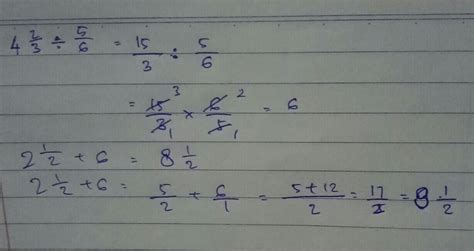 4 2/3 ÷ 5/6 = 15/3 ÷ 5/6
= 15/3 3 1 × 6/5 2 1 = 6
2 1/2 + 6 = 8 1/2
2 1/2 + 6 = 5/2 + 6/1 = 5+12/2 = 17/2 = 8 1/2